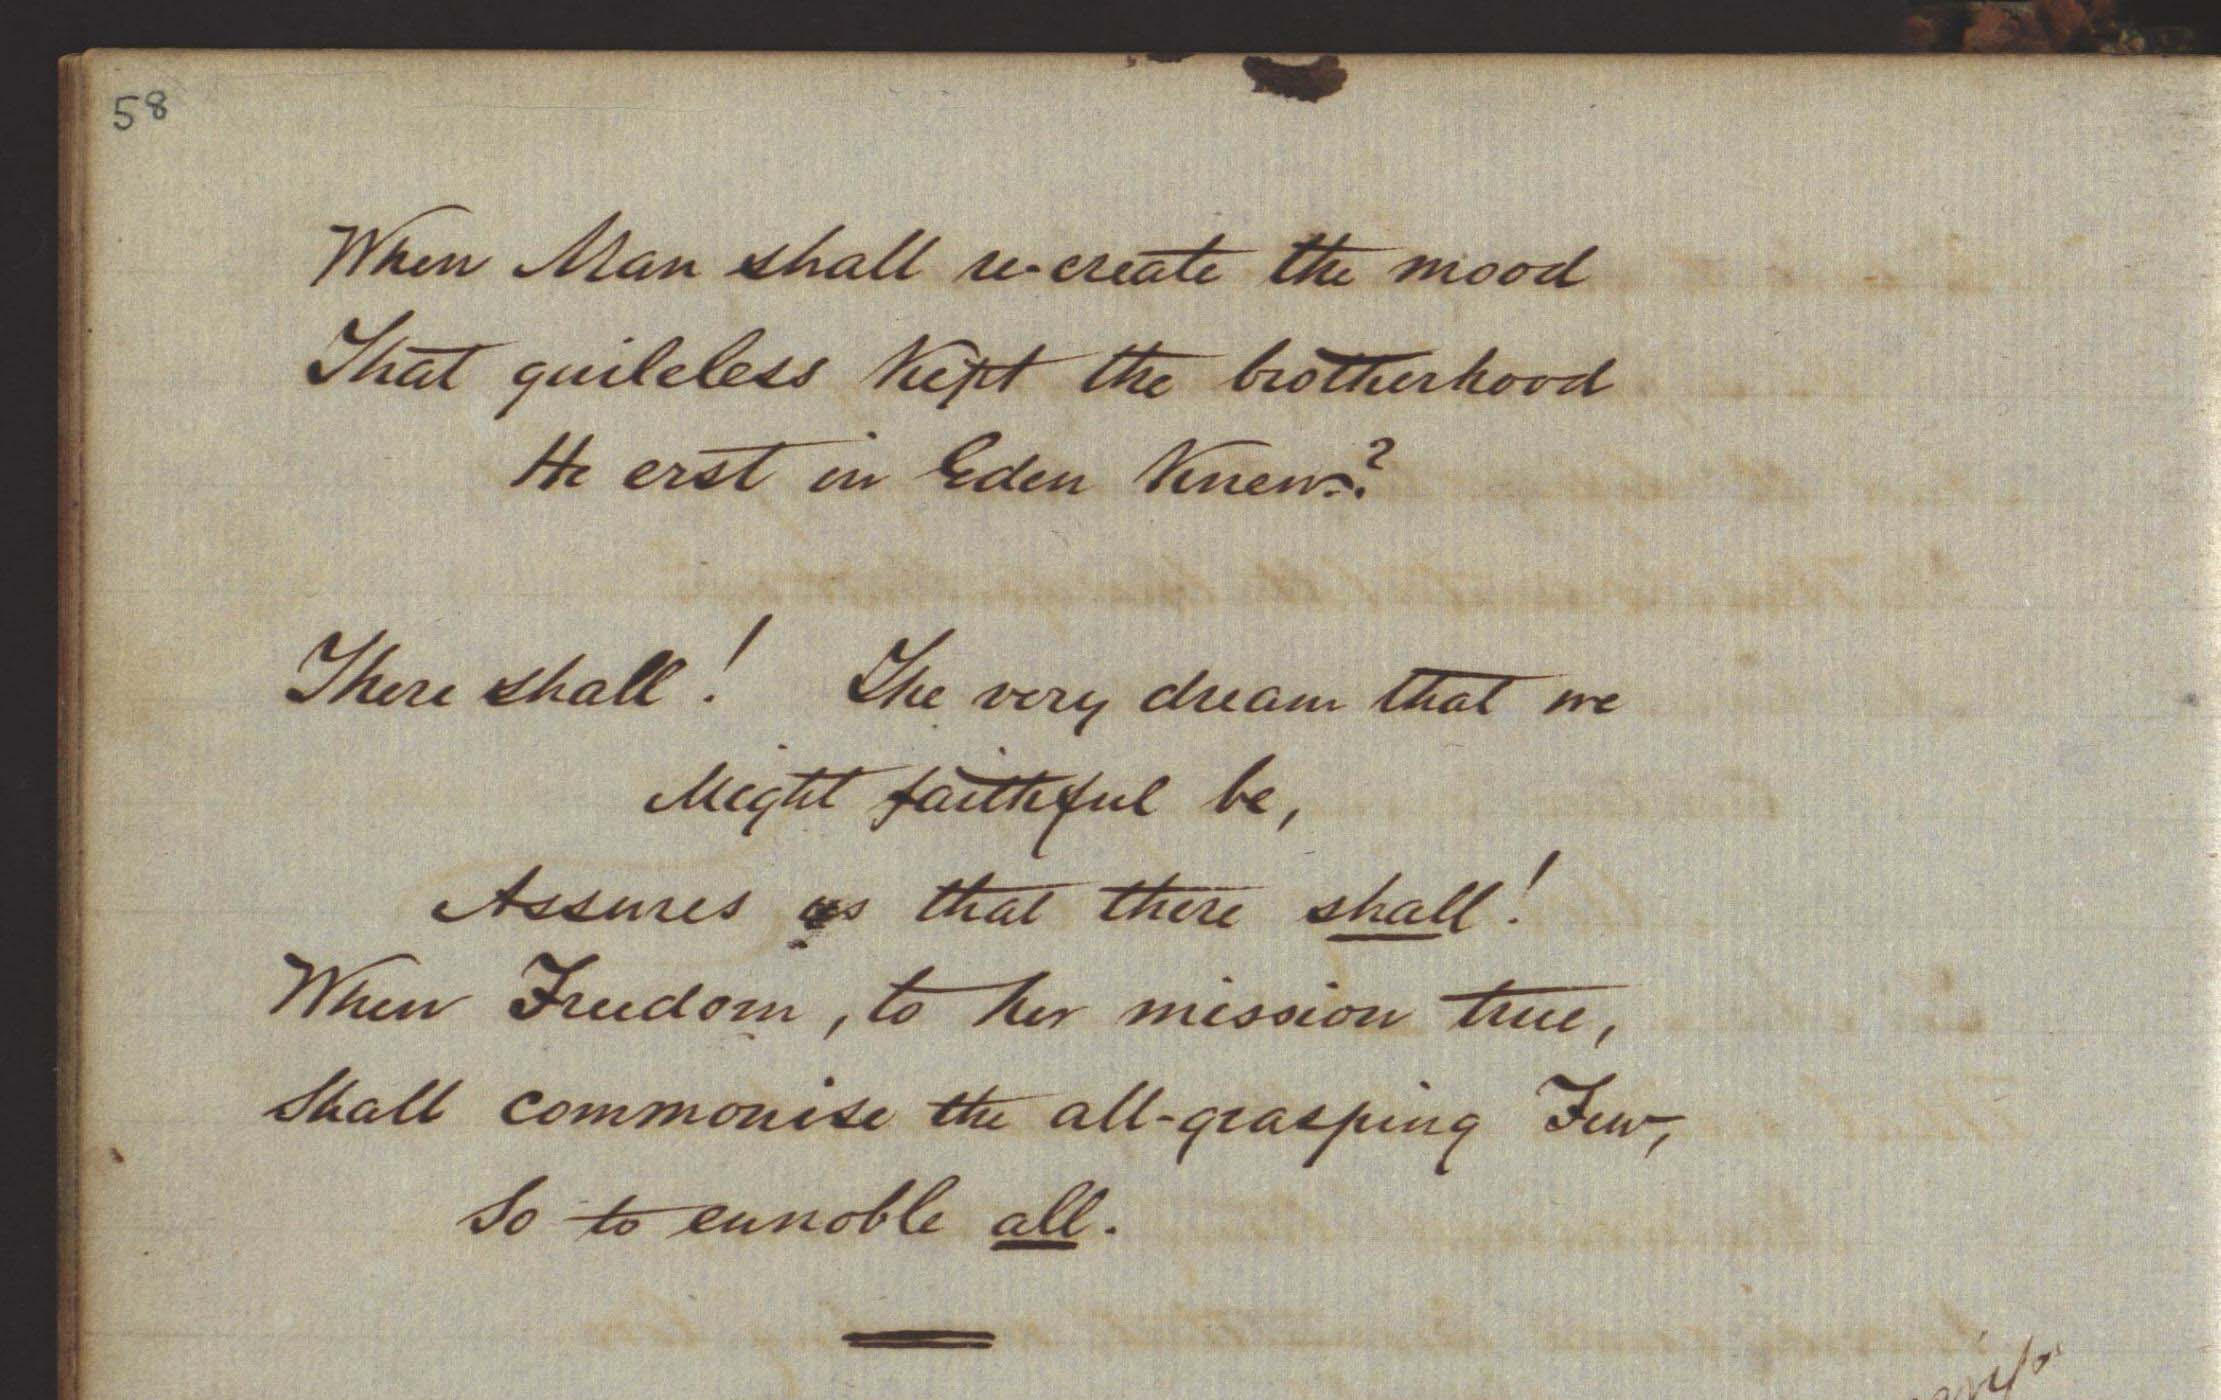 58
When Man shall re-create the mood
That guileless kept the brotherhood
He erst in Eden knew?
There shall! The very dream that we
Might faithful be,
Assures us that there shall!
When Freedom, to her mission true,
Shall commonise the all-grasping Few,
So to ennoble all.